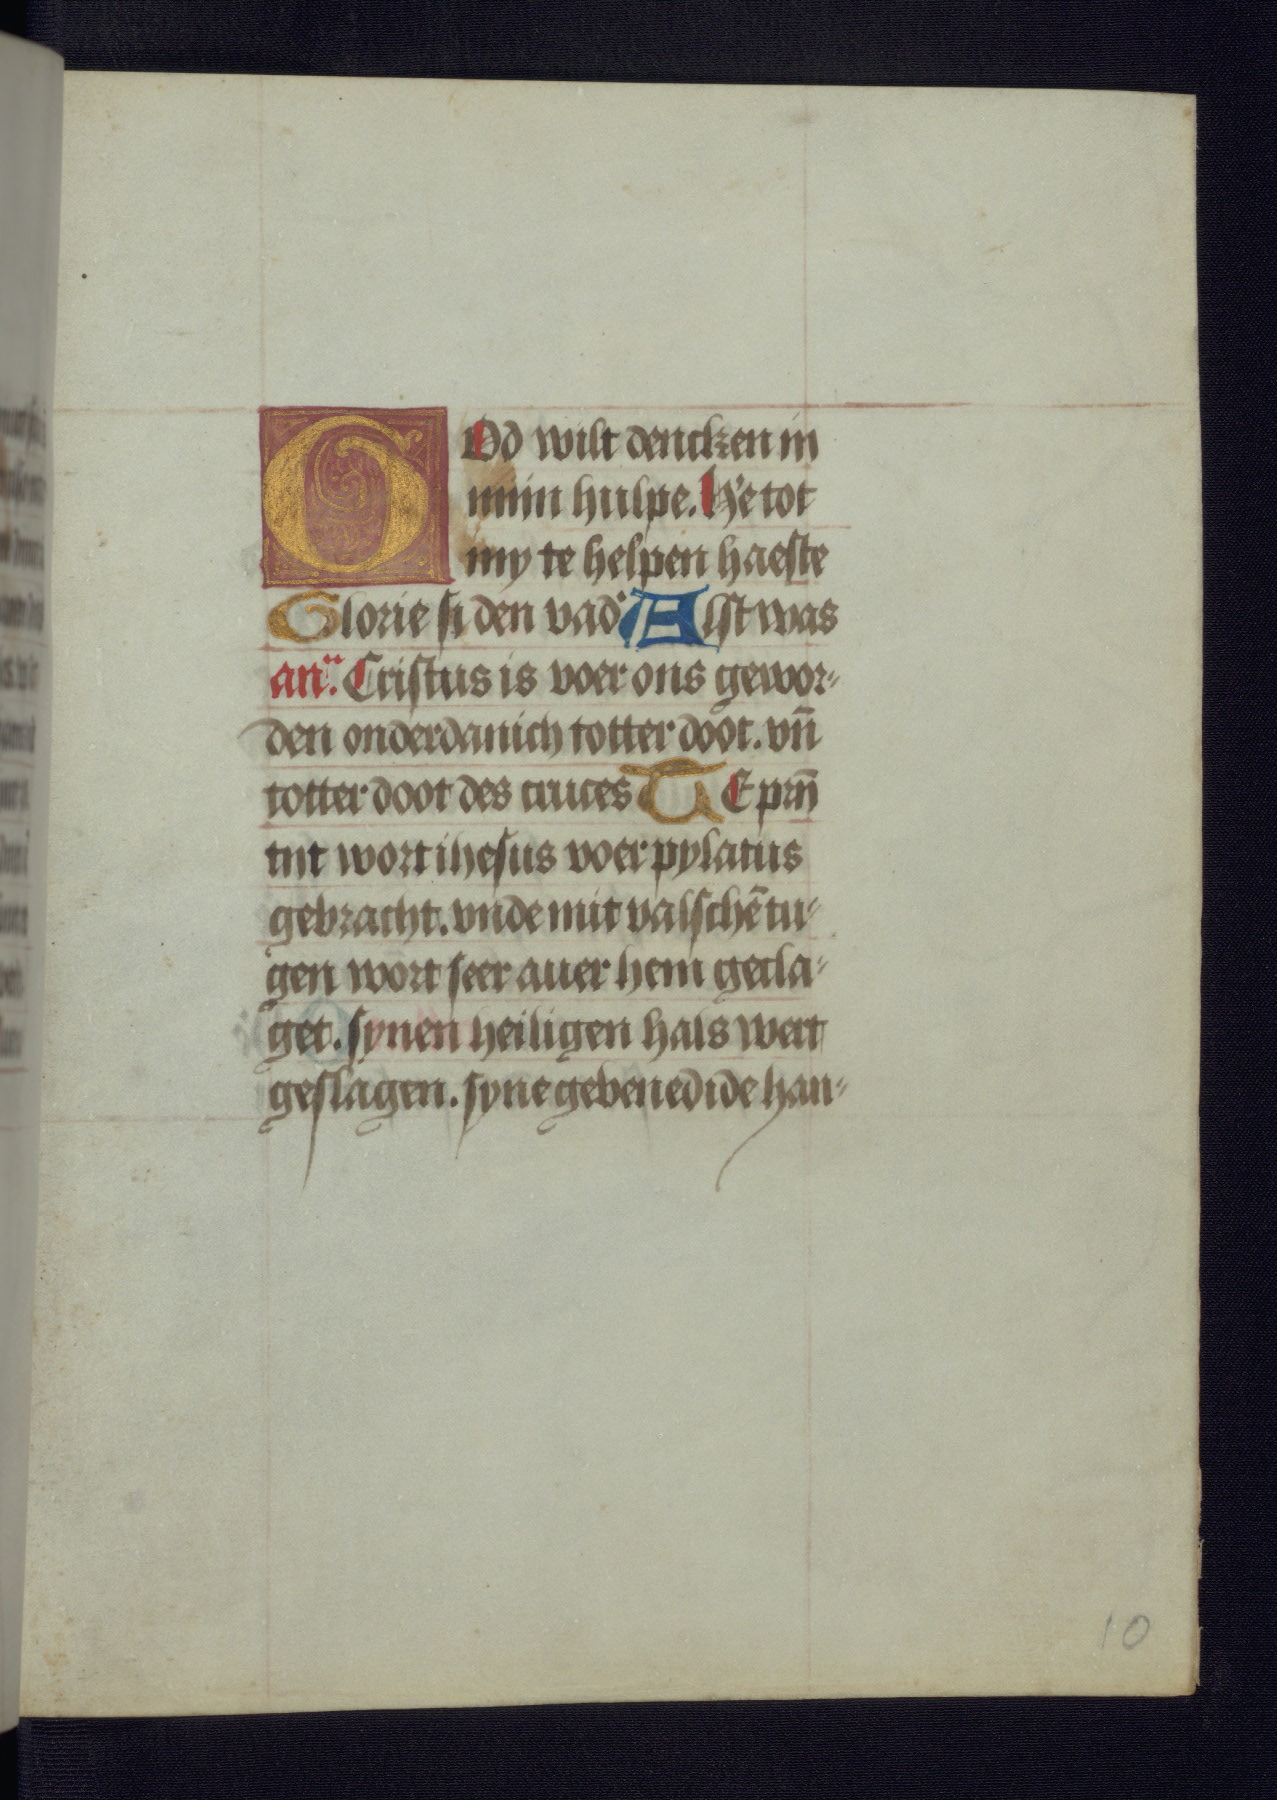 GOd wilt dencken in
miin hulpe. Here tot
my te helpen haeste
Glorie si den vad' Alst was
an̄. Cristus is voer ons gewor-
den onderdanich totter doot. vn̄
totter doot des cruces TE prīm
tyt wort ihesus voer pylatus
gebracht. vnde mit valschē tu-
gen wort seer auer hem gecla-
get. synen heiligen hals wert
geslagen. syne gebenedide han-
10